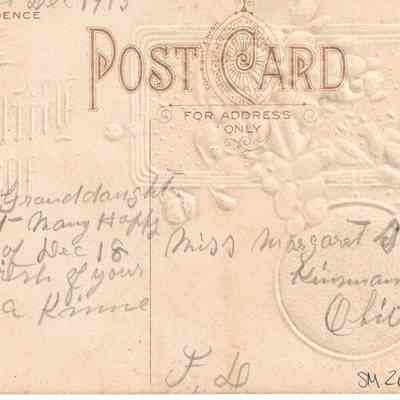 Dec 1913
DENCE
POST CARD
FOR ADDRESS
ONLY
Granddaught
Many Happy
of Dec 18
of your
a Kinne
Miss Margaret
Kinsman
Ohio
F. D
SM 26